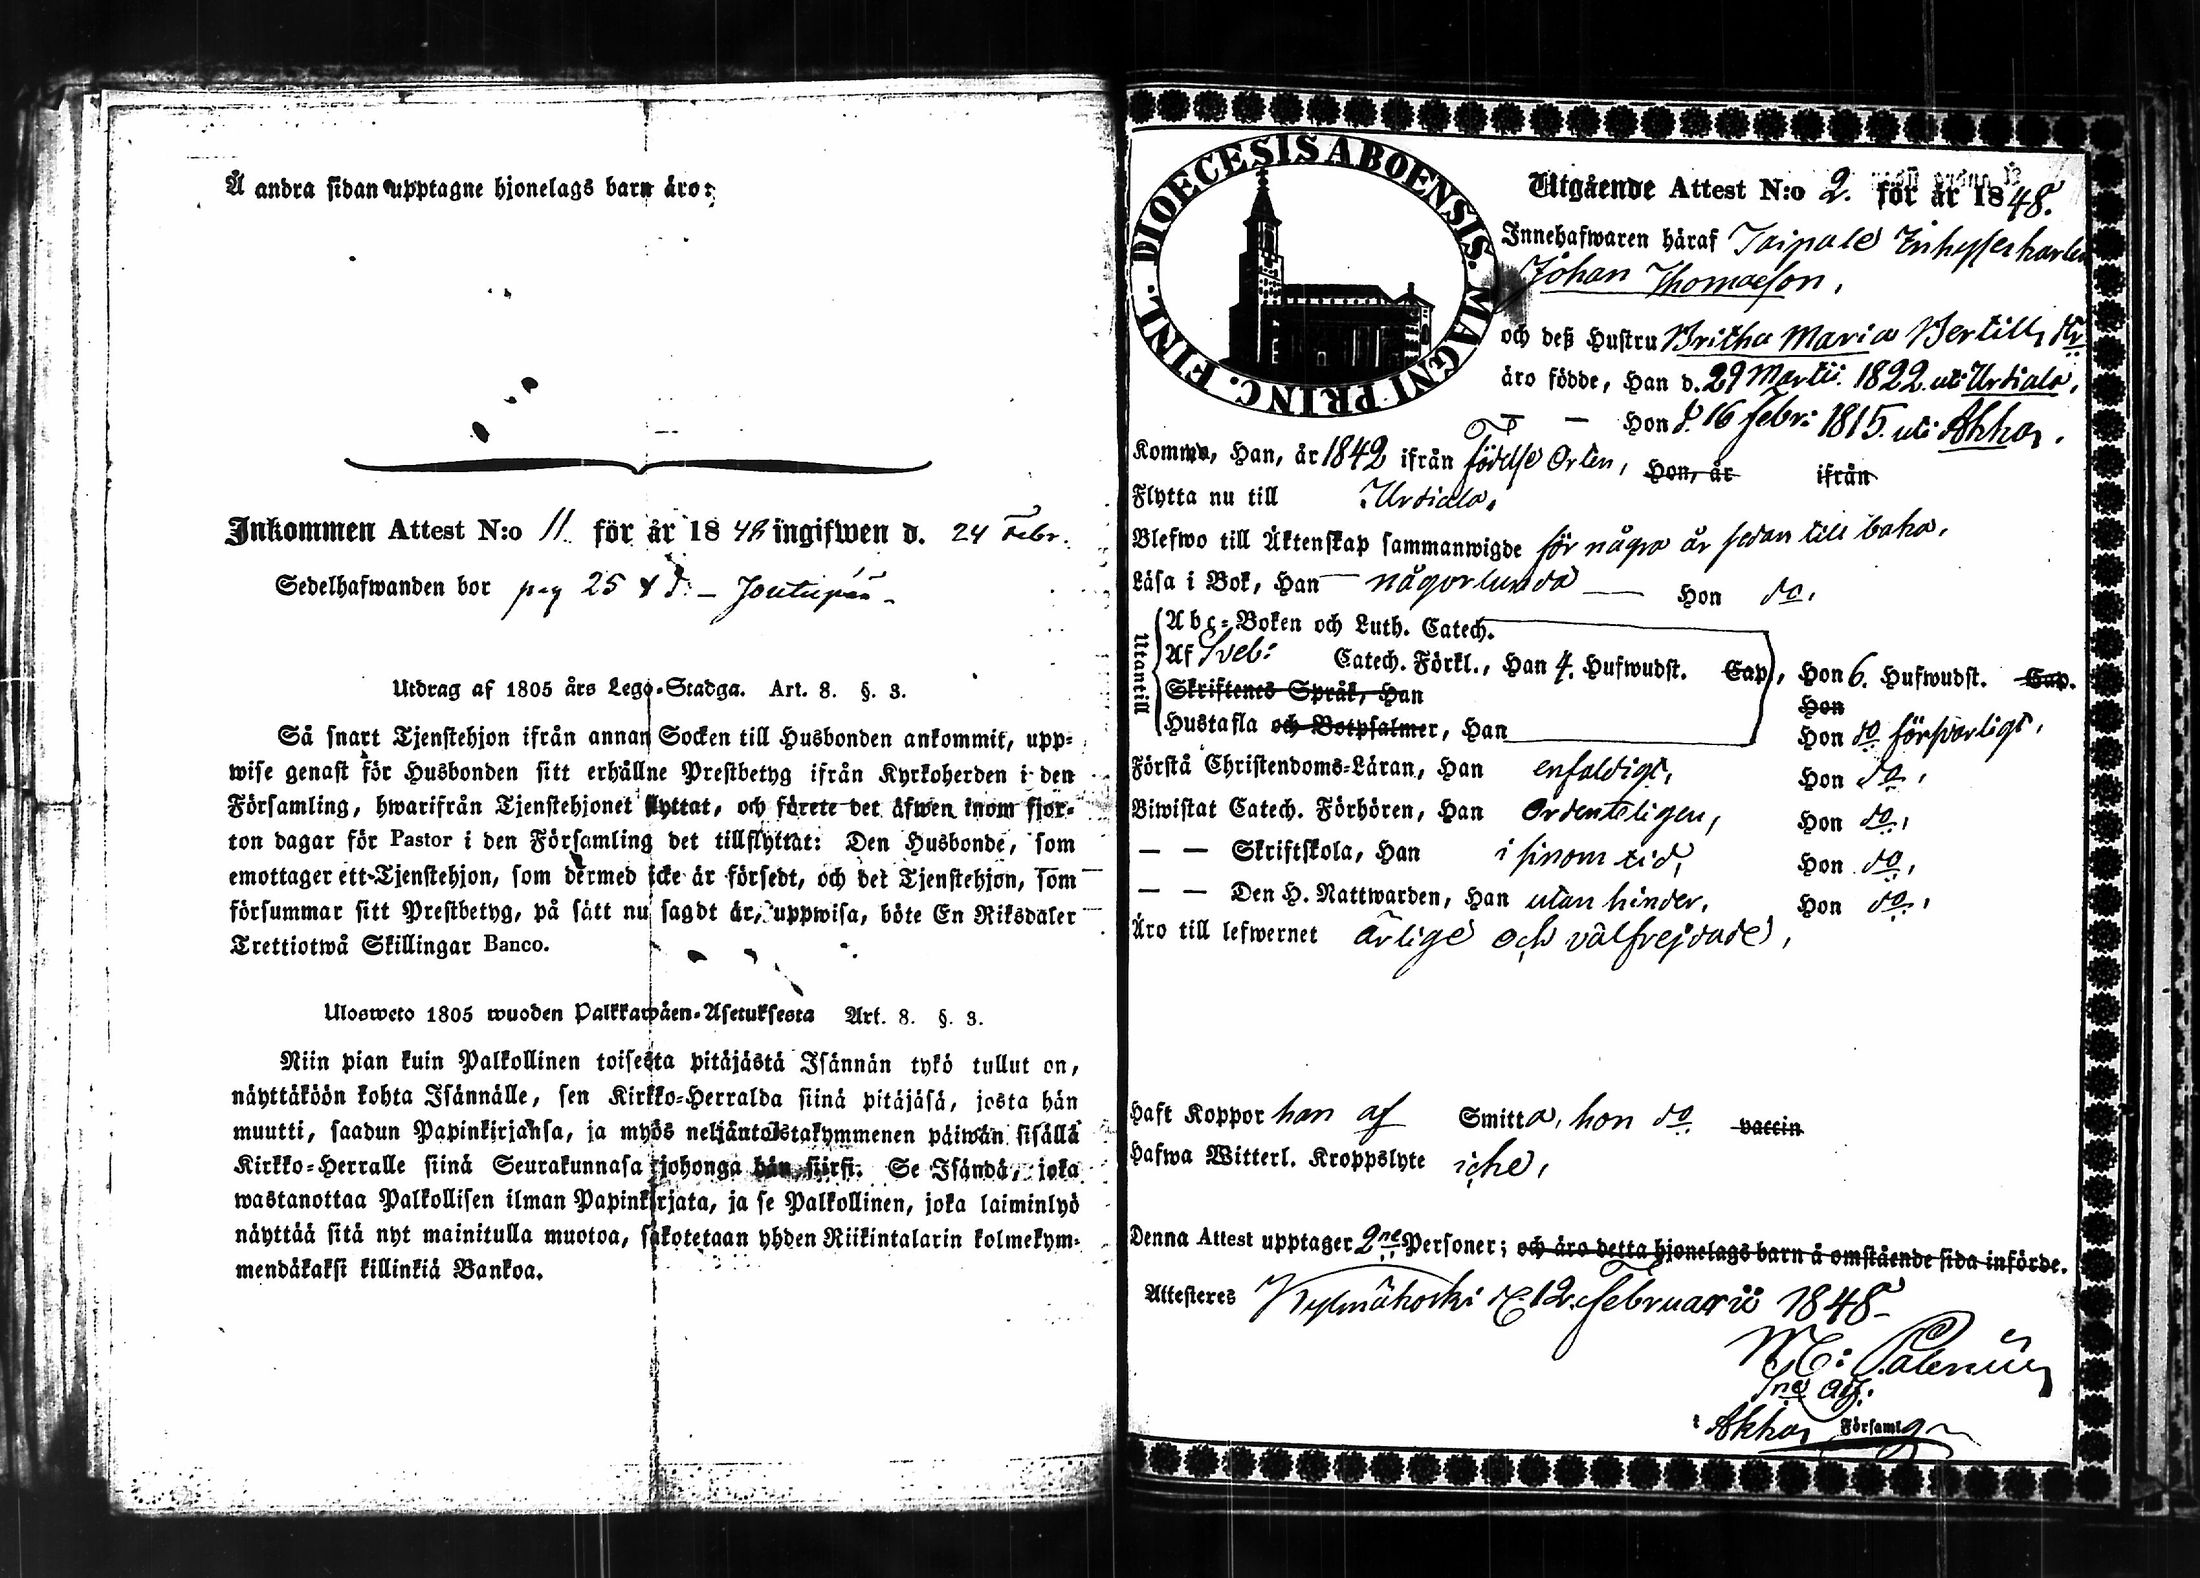 Å andra sidan upptagne hjonelags barn äro:
Inkommen Attest N:o 11 för år 1848 ingifwen d. 24 Febr.
Sedelhafwanden bor pag 25
Utdrag af 1805 års Lego-Stadga. Art. 8. §. 3.
Så snart Tjenstehjon ifrån annan Socken till Husbonden ankommit, upp-
wise genast för Husbonden sitt erhållne Prestbetyg ifrån Kyrkoherden i den
Församling, hwarifrån Tjenstehjonet flyttat, och förete det äfwen inom fjor-
ton dagar för Pastor i den Församling det tillflyttat: Den Husbonde, som
emottager ett Tjenstehjon, som dermed icke är försedt, och det Tjenstehjon, som
försummar sitt Prestbetyg, på sätt nu sagdt är, uppwisa, böte En Riksdaler
Trettiotwå Skillingar Banco.
Ulosweto 1805 wuoden Palkkawäen-Asetuksesta Art. 8. §. 3.
Niin pian kuin Palkollinen toisesta pitäjästä Isännän tykö tullut on,
näyttäköön kohta Isännälle, sen Kirkko-Herralda siinä pitäjäsä, josta hän
muutti, saadun Papinkirjansa, ja myös neljäntoistakymmenen päiwän sisällä
Kirkko-Herralle siinä Seurakunnasa johonga hän siirsi. Se Isändä, joka
wastanottaa Palkollisen ilman Papinkirjata, ja se Palkollinen, joka laiminlyö
näyttää sitä nyt mainitulla muotoa, sakotetaan yhden Riikintalarin kolmekym-
mendäkaksi killinkiä Bankoa.
DIOECESIS ABOENSIS. MAGNI PRINC. FINL.
Utgående Attest N:o 2. för år 1848.
Innehafwaren häraf Taipale Inhysekarlen
Johan Thomasson,
och deß Hustru Britha Maria Bertils dr
äro födde, Han d. 29 Martii 1822 uti Urdiala,
— — Hon d. 16 Febr: 1815 uti Akkas.
Komne, Han, år 1842 ifrån födelse Orten, Hon, år ifrån
Flytta nu till Urdiala.
Blefwo till Äktenskap sammanwigde för några år sedan till baka.
Läsa i Bok, Han någorlunda Hon do,
Utantill
Abc-Boken och Luth. Catech.
Af Sveb: Catech. Förkl., Han 4. Hufwudst. Cap., Hon 6. Hufwudst. Cap.
Skriftenes Språk, Han Hon
Hustafla och Botpsalmer, Han Hon do försvarligt,
Förstå Christendoms-Läran, Han enfaldigt, Hon do,
Biwistat Catech. Förhören, Han Ordenteligen, Hon do,
— — Skriftskola, Han i sinom tid, Hon do,
— — Den H. Nattwarden, Han utan hinder, Hon do,
Äro till lefwernet ärlige och välfrejdade,
Haft Koppor han af Smitta, hon do vaccin
Hafwa Witterl. Kroppslyte icke,
Denna Attest upptager 2ne Personer; och äro detta hjonelags barn å omstående sida införde.
Attesteres Kylmäkoski d. 12. Februarii 1848
i Akkas Församl